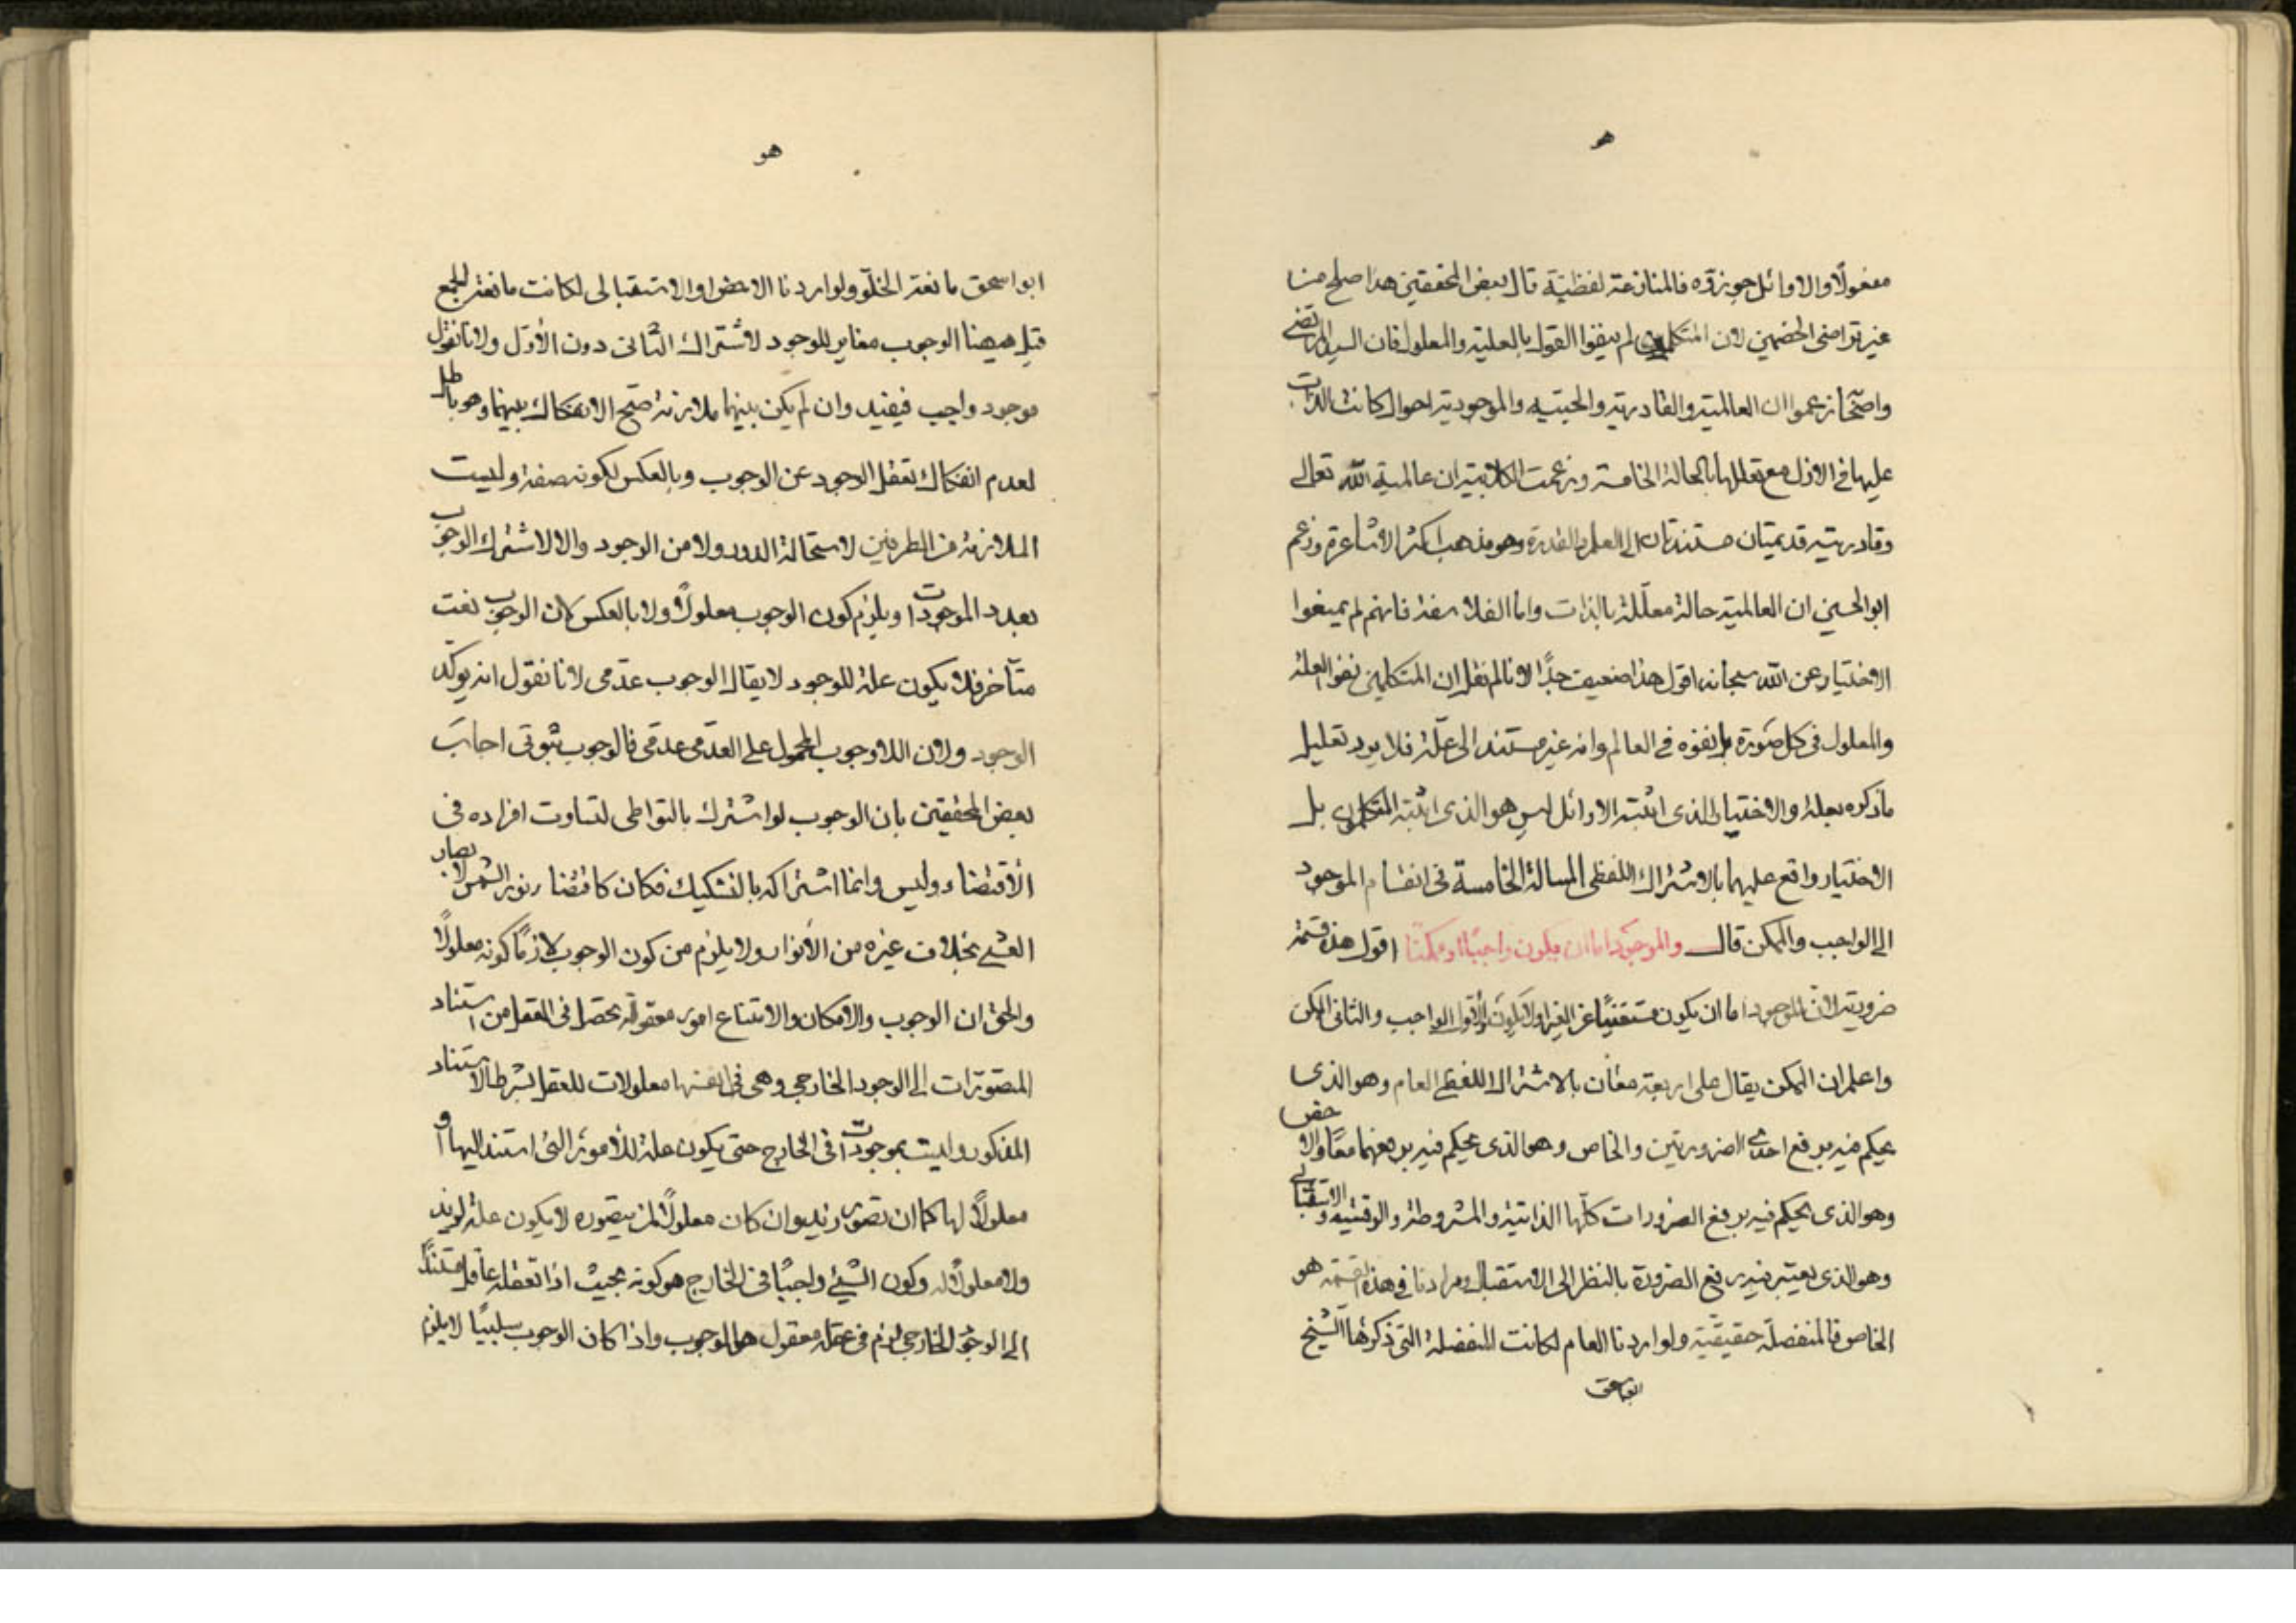 هو
مفعولًا والاوائل جوزوه فالمنازعة لفظية قال بعض المحققين هذا صلح من
غير تراضى الخصمين لان المتكلمين لم ينفوا القول بالعلية والمعلول فان السيد المرتضى
واصحابه زعموا ان العالمية والقادرية والحيية والموجودية احوال كانت الذات
عليها فى الازل مع تعللها بالحالة الخامسة وزعمت الكلابية ان عالمية الله تعالى
وقادريته قديمتان مستندتان الى العلم والقدرة وهو مذهب اكثر الاشاعرة وزعم
ابو الحسين ان العالمية حالة معلّلة بالذات واما الفلاسفة فانهم لم يمنعوا
الاختيار عن الله سبحانه اقول هذا ضعيف جدًا لانا لم نقل ان المتكلمين نفوا العلة
والمعلول فى كل صورة بل نفوه فى العالم وانه غير مستند الى علّة فلا يرد تعليل
ما ذكره بعلة والاختيار الذى اثبته الاوائل ليس هو الذى اثبته المتكلمون بل
الاختيار واقع عليهما بالاشتراك اللفظى المسالة الخامسة فى انقسام الموجود
الى الواجب والممكن قال والموجود اما ان يكون واجبًا او ممكنًا اقول هذه قسمة
ضرورية لان الموجود اما ان يكون مستغنيًا عن الغير اولا يكون والاول الواجب والثانى الممكن
واعلم ان الممكن يقال على اربعة معان بالاشتراك اللفظى العام وهو الذى
يحكم فيه برفع احدى الضرورتين والخاص وهو الذى يحكم فيه برفعهما معًا والاخص
وهو الذى يحكم فيه برفع الضرورات كلّها الذاتية والمشروطة والوقتية والاستقبالى
وهو الذى يعتبر فيه رفع الضرورة بالنظر الى الاستقبال ومرادنا فى هذه القسمة هو
الخاص فالمنفصلة حقيقية ولو اردنا العام لكانت المنفصلة التى ذكرها الشيخ
ابواسحق
هو
ابو اسحق مانعة الخلّو ولو اردنا الاخص او الاستقبالى لكانت مانعة للجمع
قيل هيهنا الوجوب مغاير للوجود لاشتراك الثانى دون الاوّل ولانا نقول
موجود واجب فيفيد وان لم يكن بينهما ملازمة صح الانفكاك بينهما وهو باطل
لعدم انفكاك تعقل الوجود عن الوجوب وبالعكس لكونه صفة وليست
الملازمة من الطرفين لاستحالة الدور ولا من الوجود والا لاشترك الوجوب
بعدد الموجودات او يلزم كون الوجوب معلولًا ولا بالعكس لان الوجوب نعت
متأخر فلا يكون علة للوجود لا يقال الوجوب عدمى لانا نقول انه يوكّد
الوجود ولان اللاوجوب المحمول على العدمى عدمى فالوجوب ثبوتى اجاب
بعض المحققين بان الوجوب لو اشترك بالتواطى لتساوت افراده فى
الاقتضاء وليس وانما اشتراكه بالتشكيك فكان كاقتضاء نور الشمس لابصار
العشى بخلاف غيره من الأنوار ولا يلزم من كون الوجوب لازمًا كونه معلولًا
والحق ان الوجوب والامكان والامتناع امور معقولة تحصل فى العقل من استناد
المتصورات الى الوجود الخارجى وهى فى انفسها معلولات للعقل بشرط الاستناد
المذكور وليست بموجودات فى الخارج حتى يكون علة للأمور التى استند اليها او
معلولًا لها كما ان تصور زيد وان كان معلولًا لمن يتصوره لا يكون علة لزيد
ولا معلولًا له وكون الشىء واجبًا فى الخارج هو كونه بحيث اذا تعقله عاقل مستندًا
الى الوجود الخارجى لزم فى عقله معقول هو الوجوب واذا كان الوجوب سلبيًا لا يلزم